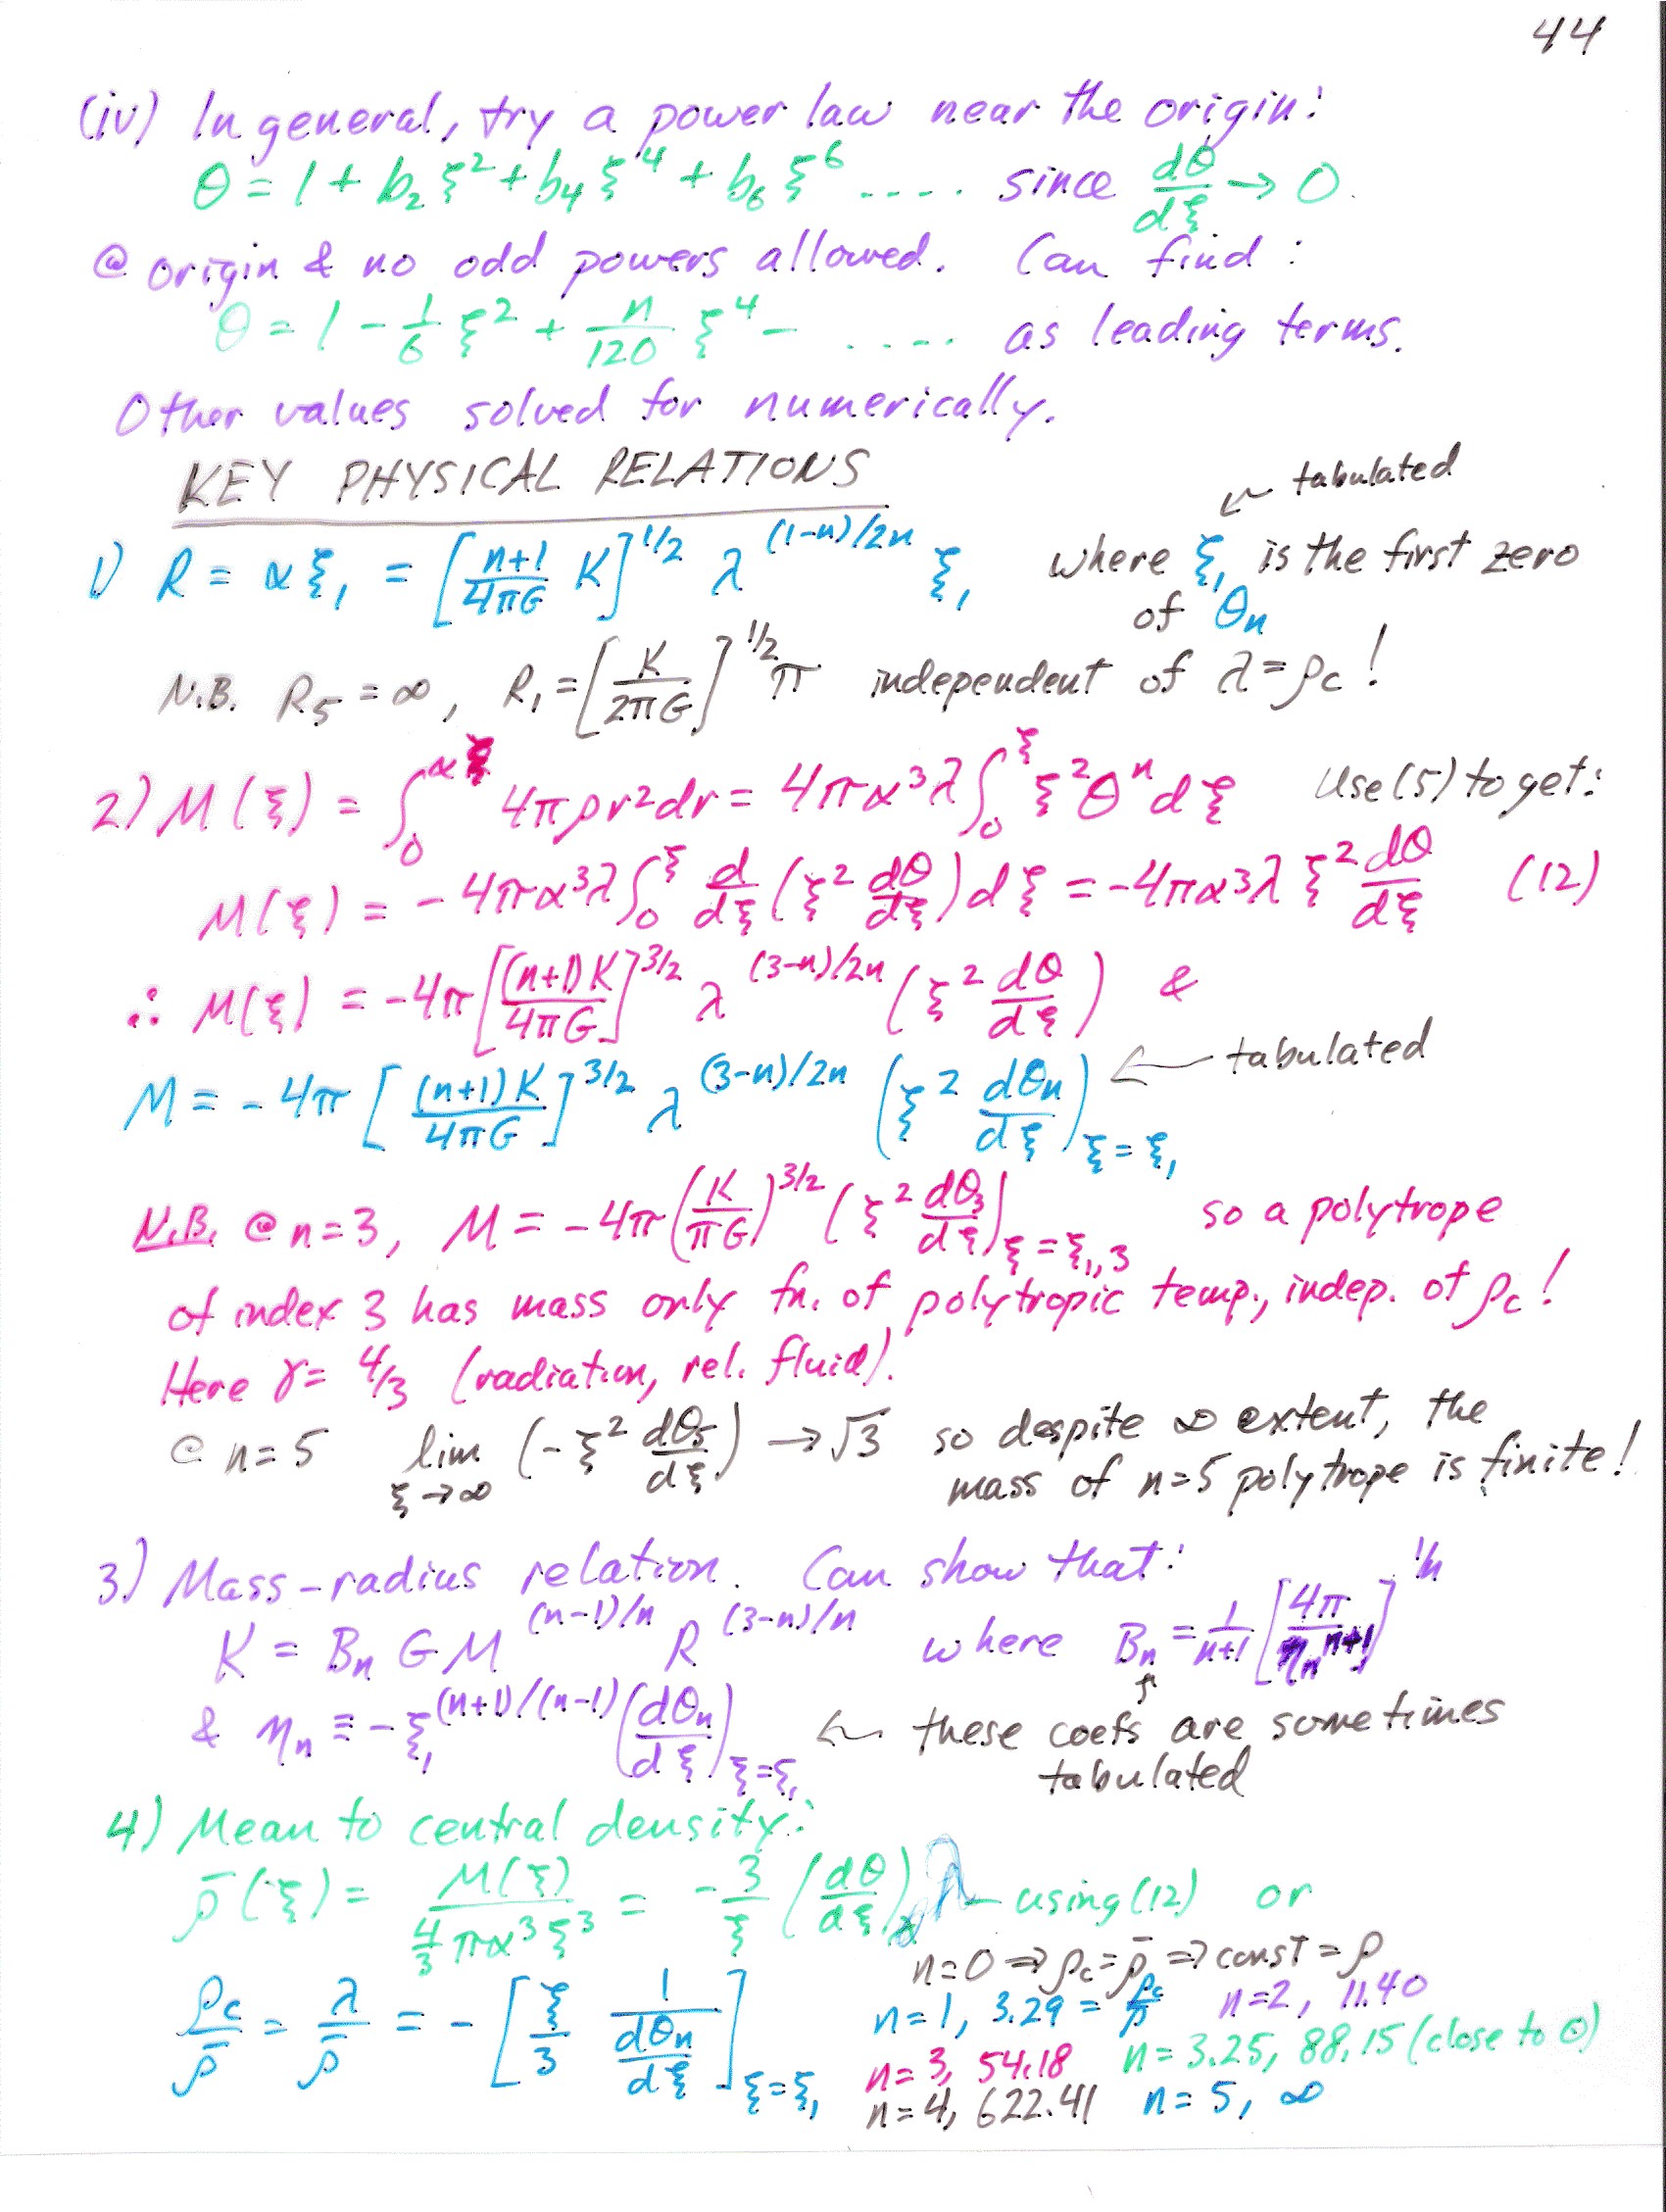 44
(iv) In general, try a power law near the origin:
θ = 1 + b₂ ξ² + b₄ ξ⁴ + b₆ ξ⁶ .... since dθ/dξ → 0
@ origin & no odd powers allowed. Can find:
θ = 1 - 1/6 ξ² + n/120 ξ⁴ - .... as leading terms.
Other values solved for numerically.
KEY PHYSICAL RELATIONS
← tabulated
1) R = αξ₁ = [n+1/4πG K]^1/2 λ^(1-n)/2n ξ₁ where ξ₁ is the first zero
of θn
N.B. R₅ = ∞, R₁ = [K/2πG]^1/2 π independent of λ = ρc!
2) M(ξ) = ∫₀^αξ 4πρr²dr = 4πα³λ ∫₀^ξ ξ²θⁿdξ Use (5) to get:
M(ξ) = -4πα³λ ∫₀^ξ d/dξ (ξ² dθ/dξ) dξ = -4πα³λ ξ² dθ/dξ (12)
∴ M(ξ) = -4π [(n+1)K/4πG]^3/2 λ^(3-n)/2n (ξ² dθ/dξ) &
M = -4π [(n+1)K/4πG]^3/2 λ^(3-n)/2n (ξ² dθn/dξ)ξ=ξ₁ ← tabulated
N.B. @ n=3, M = -4π (K/πG)^3/2 (ξ² dθ₃/dξ)ξ=ξ₁,₃ so a polytrope
of index 3 has mass only fn. of polytropic temp., indep. of ρc!
Here γ = 4/3 (radiation, rel. fluid).
@ n=5 lim ξ→∞ (-ξ² dθ₅/dξ) → √3 so despite ∞ extent, the
mass of n=5 polytrope is finite!
3) Mass-radius relation. Can show that:
K = Bn G M^(n-1)/n R^(3-n)/n where Bn = 1/n+1 [4π/ηn^n+1]^1/n
& ηn ≡ -ξ₁^(n+1)/(n-1) (dθn/dξ)ξ=ξ₁ ← these coefs are sometimes
tabulated
4) Mean to central density:
ρ̄(ξ) = M(ξ)/4/3 πα³ξ³ = -3/ξ (dθ/dξ) λ - using (12) or
n=0 ⇒ ρc = ρ̄ ⇒ const = ρ
ρc/ρ̄ = λ/ρ̄ = -[ξ/3 1/dθn/dξ]ξ=ξ₁ n=1, 3.29 = ρc/ρ̄ n=2, 11.40
n=3, 54.18 n=3.25, 88.15 (close to ⊙)
n=4, 622.41 n=5, ∞